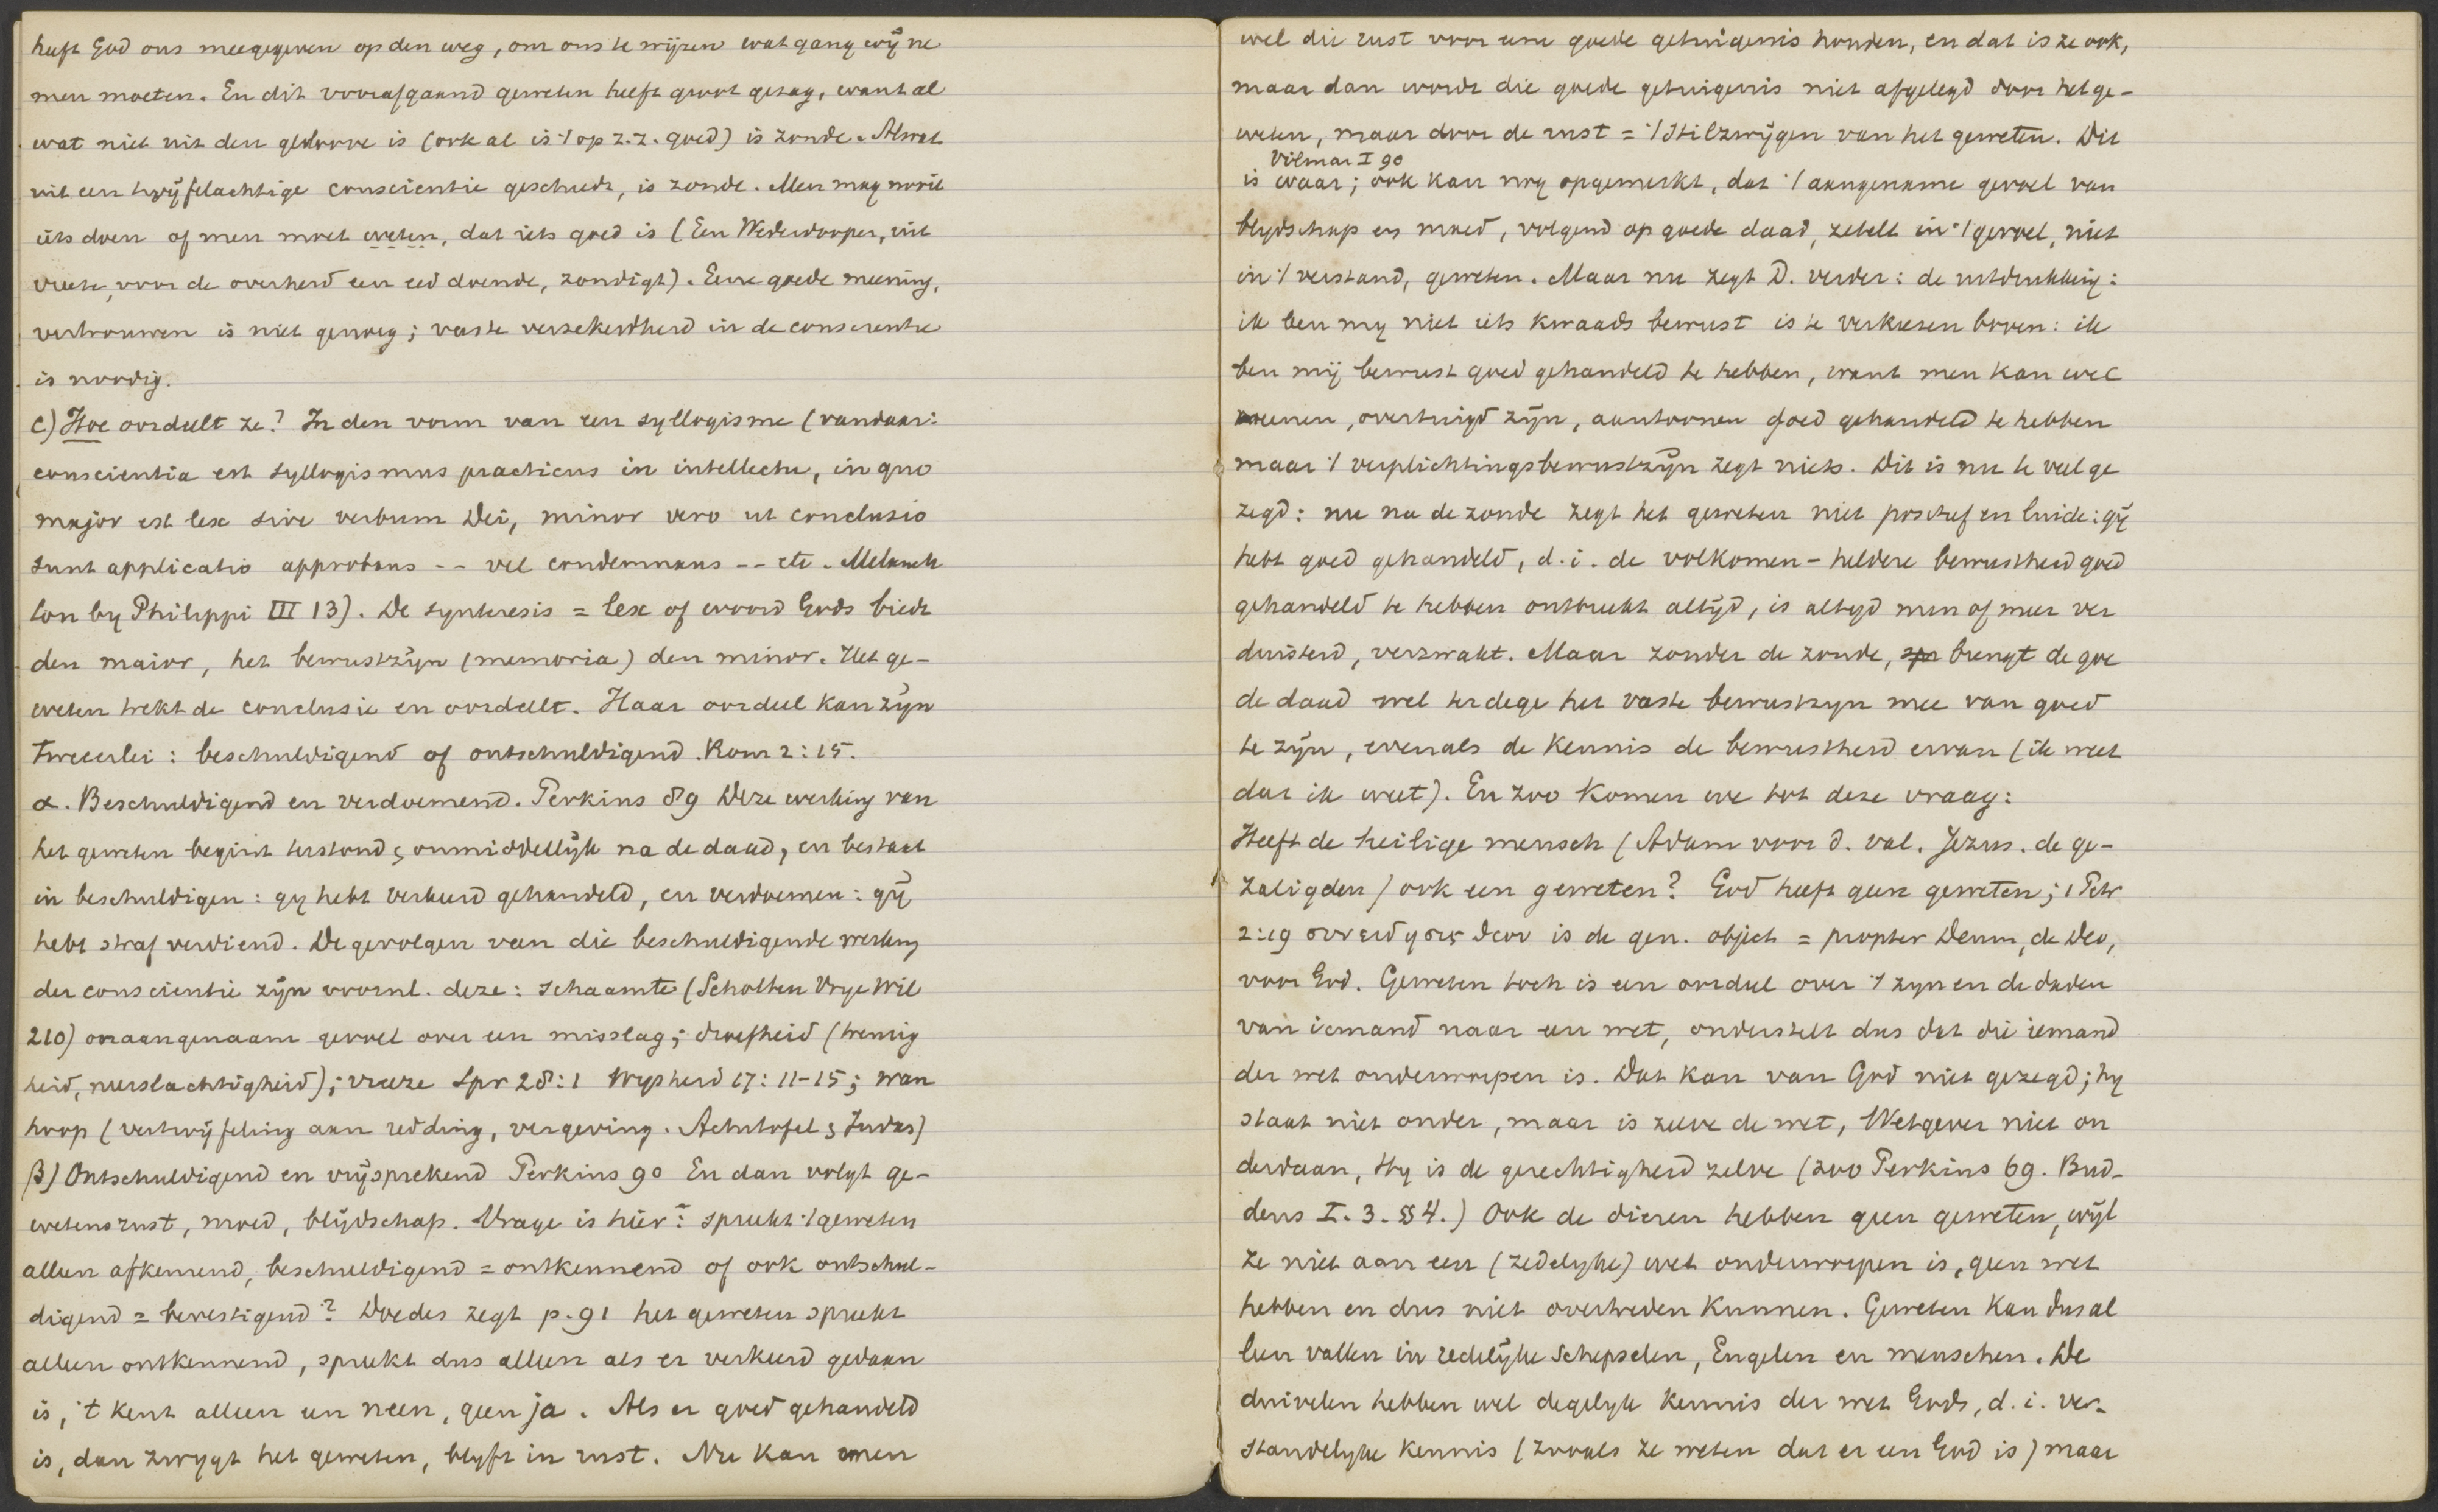 heeft God ons meegegeven op den weg, om ons te wijzen wat gang wij ne
men moeten. En dit voorafgaand geweten heeft groot gezag, want al
wat niet uit den geloove is (ook al is 't op z.z. goed) is zonde. Alwat
uit een twijfelachtige conscientie geschiedt, is zonde. Men mag nooit
iets doen of men moet weten, dat iets goed is (Een Wederdooper, uit
vreeze, voor de overheid een eed doende, zondigt). Eene goede meening,
vertrouwen is niet genoeg; vaste verzekerdheid in de conscientie
is noodig.
C) Hoe oordeelt ze? In den vorm van een syllogisme (vandaar:
conscientia est syllogismus practicus in intellectu, in quo
major est lex sive verbum Dei, minor vero ut conclusio
sunt applicatio approbans -- vel condemnans -- etc. Melanch
ton by Philippi III 13). De synteresis = lex of woord Gods biedt
den maior, het bewustzijn (memoria) den minor. Het ge-
weten trekt de conclusie en oordeelt. Haar oordeel kan zijn
tweeerlei: beschuldigend of ontschuldigend. Rom 2:15.
α. Beschuldigend en verdoemend. Perkins 89 Deze werking van
het geweten begint terstond, onmiddellijk na de daad, en bestaat
in beschuldigen: gy hebt verkeerd gehandeld, en verdoemen: gij
hebt straf verdiend. De gevolgen van die beschuldigende werking
der conscientie zijn voornl. deze: schaamte (Scholten Vrye Wil
210) onaangenaam gevoel over een misslag; droefheid (treurig
heid, neerslachtigheid); vreeze Spr 28:1 Wysheid 17:11-15; wan
hoop (vertwijfeling aan redding, vergeving. Achitofel & Judas)
β) Ontschuldigend en vrijsprekend Perkins 90 En dan volgt ge-
wetensrust, moed, blijdschap. Vrage is hier: spreekt 't geweten
alleen afkeurend, beschuldigend = ontkennend of ook ontschul-
digend = bevestigend? Doedes zegt p. 91 het geweten spreekt
alleen ontkennend, spreekt dus alleen als er verkeerd gedaan
is, 't kent alleen een neen, geen ja. Als er goed gehandeld
is, dan zwygt het geweten, blyft in rust. Nu kan men
wel die rust voor eene goede getuigenis houden, en dat is ze ook,
maar dan wordt die goede getuigenis niet afgelegd door het ge-
weten, maar door de rust = 't stilzwijgen van het geweten. Dit
Vilmar I 90
is waar; ook kan nog opgemerkt, dat 't aangename gevoel van
blydschap en moed, volgend op goede daad, zetelt in 't gevoel, niet
in 't verstand, geweten. Maar nu zegt D. verder: de uitdrukking:
ik ben my niet iets kwaads bewust is te verkiezen boven: ik
ben mij bewust goed gehandeld te hebben, want men kan wel
meenen, overtuigd zijn, aantoonen goed gehandeld te hebben
maar 't verplichtingsbewustzijn zegt niets. Dit is nu te veel ge
zegd: nu na de zonde zegt het geweten niet positief en luide: gij
hebt goed gehandeld, d.i. de volkomen-heldere bewustheid goed
gehandeld te hebben ontbreekt altijd, is altyd min of meer ver
duisterd, verzwakt. Maar zonder de zonde, brengt de goe
de daad wel terdege het vaste bewustzyn mee van goed
te zijn, evenals de kennis de bewustheid ervan (ik weet
dat ik weet). En zoo komen we tot deze vraag:
Heeft de heilige mensch (Adam voor d. val. Jezus. de ge-
zaligden) ook een geweten? God heeft geen geweten; 1 Petr
2:19 συνειδησις θεου is de gen. object = propter Deum, de Deo,
voor God. Geweten toch is een oordeel over 't zyn en de daden
van iemand naar een wet, onderstelt dus dat die iemand
der wet onderworpen is. Dat kan van God niet gezegd; hy
staat niet onder, maar is zelve de wet, Wetgever niet on
derdaan, Hy is de gerechtigheid zelve (zoo Perkins 69. Bud-
deus I. 3. §§ 4.) Ook de dieren hebben geen geweten, wijl
ze niet aan een (zedelyke) wet onderworpen is, geen wet
hebben en dus niet overtreden kunnen. Geweten kan dus al
leen vallen in redelijke schepselen, Engelen en menschen. De
duivelen hebben wel degelyk kennis der wet Gods, d.i. ver-
standelyke kennis (zooals ze weten dat er een God is) maar